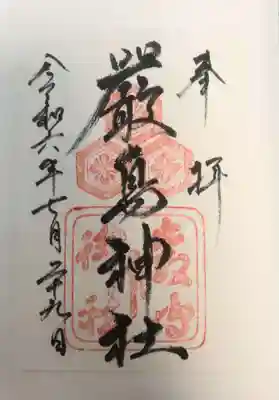 奉拝
嚴島神社
令和六年七月二十九日